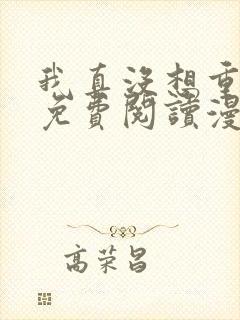 我真没想重
免費閱讀漫
高荣昌